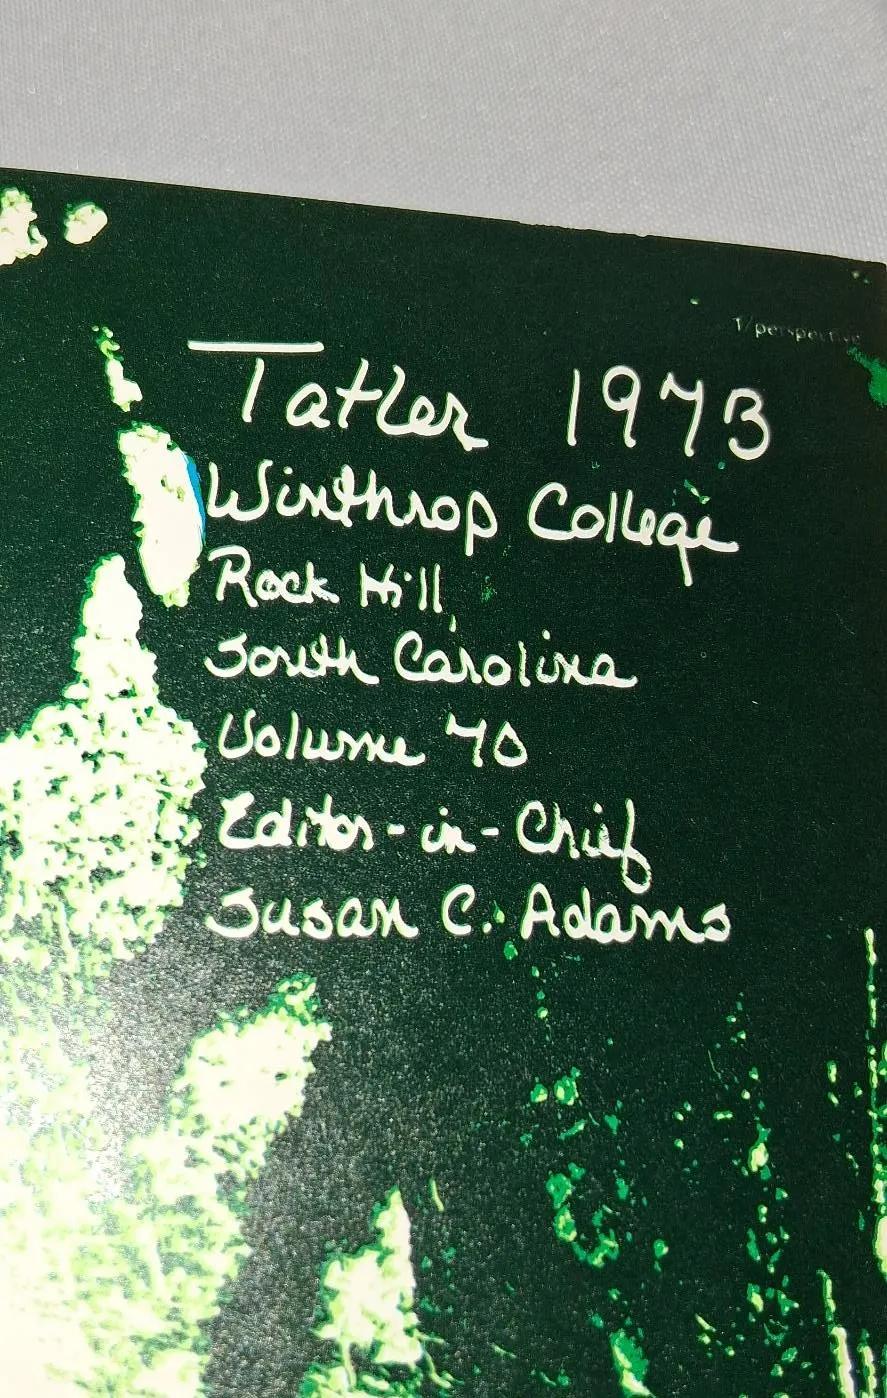 1/perspective
Tatler 1973
Winthrop College
Rock Hill,
South Carolina
Volume 70
Editor-in-Chief
Susan C. Adams